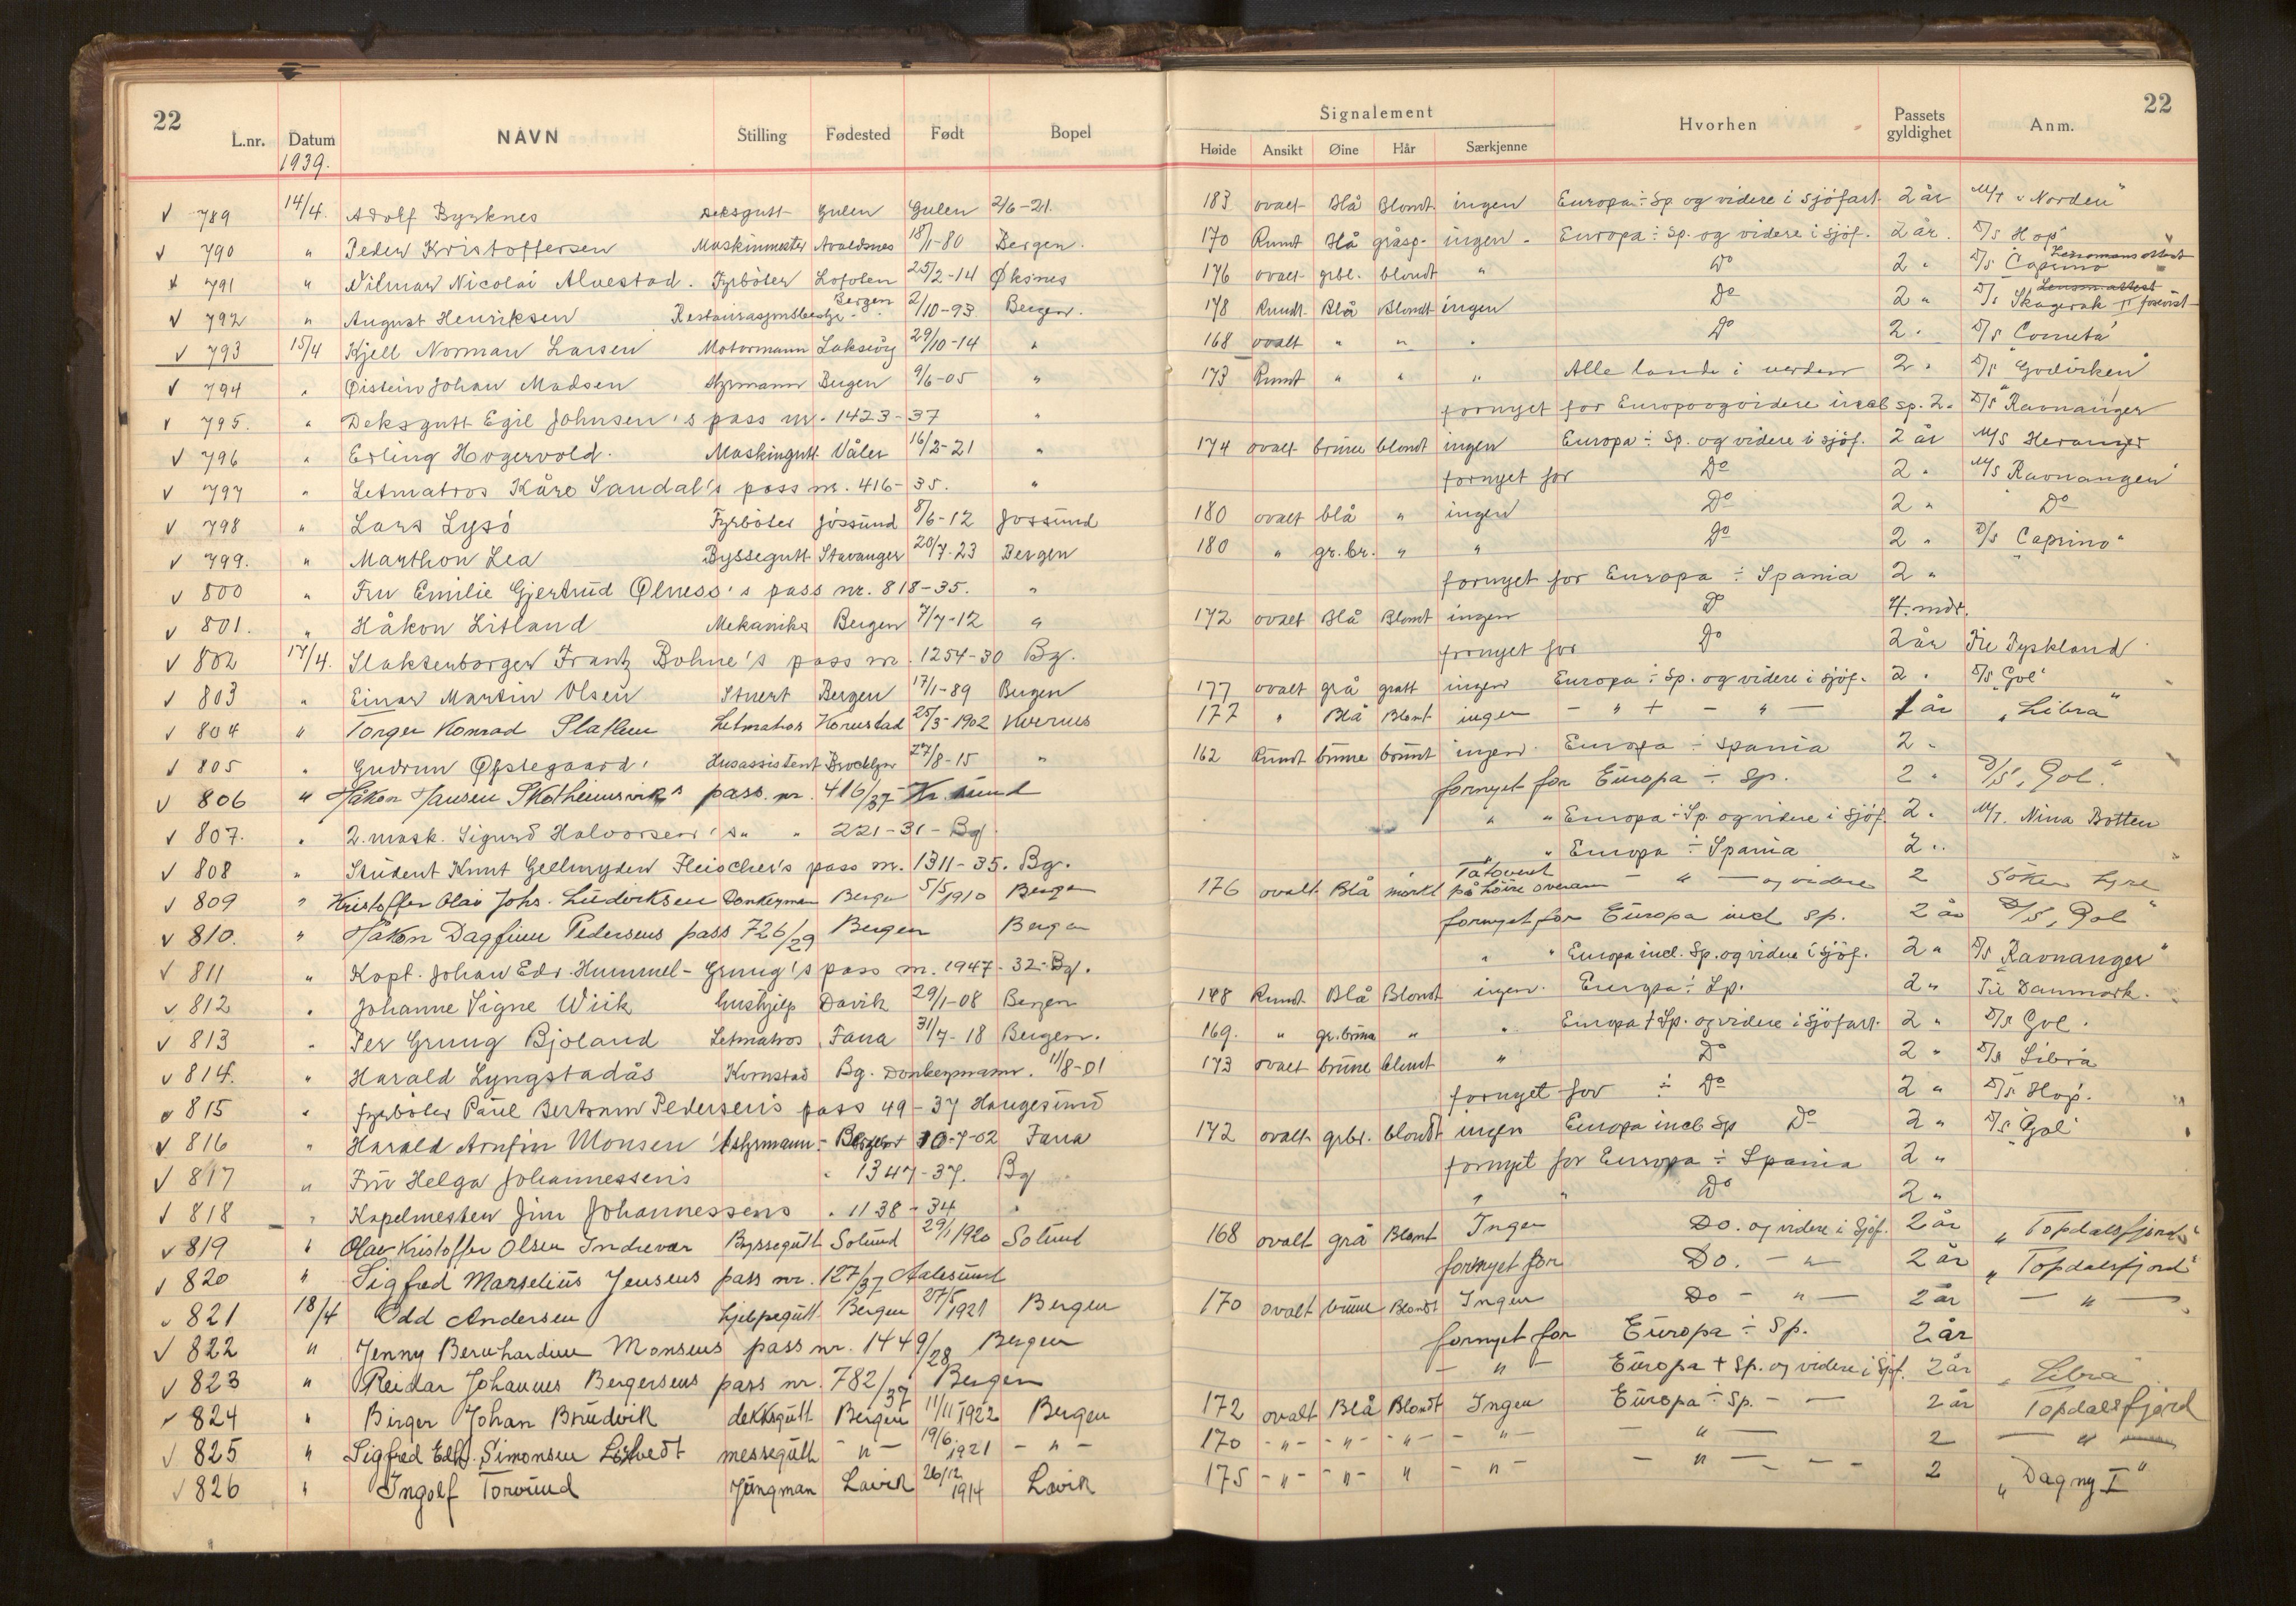 22
L.nr. Datum NAVN Stilling Fødested Født Bopel
1939.
789 14/4. Adolf Byrknes Deksgutt Gulen Gulen 2/6-21.
790 " Peder Kristoffersen Maskinmester Avaldsnes 18/1-80 Bergen.
791 " Vilmar Nicolai Alvestad. Fyrbøter Lofoten 25/2-14 Øksnes
792 " August Henriksen Restaurasjonsbestyr. Bergen 2/10-93 Bergen.
793 15/4 Kjell Norman Larsen Motormann Laksevåg 29/10-14 "
794 " Øistein Johan Madsen Styrmann Bergen 9/6-05 "
795. " Deksgutt Egil Johnsen's pass nr. 1423-37 "
796 " Erling Hogervold. Maskingutt Våler 16/2-21 "
797 " Letmatros Kåre Sandal's pass nr. 416-35. "
798 " Lars Lysø Fyrbøter Jøssund 8/6-12 Jøssund
799. " Marthon Lea Byssegutt Stavanger 20/7-23 Bergen
800 " Fru Emilie Gjertrud Ølness's pass nr. 818-35. "
801. " Håkon Litland Mekaniker Bergen 7/7-12 "
802 17/4. Slakterborger Frantz Bohne's pass nr. 1254-30 Bg.
803 " Einar Martin Olsen Stuert Bergen 17/1-89 Bergen
804 " Torger Konrad Slatlem Letmatros Kornstad 25/3-1902 Kvernes
805 " Gudrun Øpstegaard. Husassistent Brooklyn 27/8-15 "
806 " Håkon Hansen Skotheimsvik's pass. nr. 416/37 Kr. sund
807. " 2. mask. Sigurd Halvorsen's " " 221-31- Bg.
808 " Student Knut Geelmuyden Fleischer's pass nr. 1311-35. Bg.
809 " Kristoffer Olai Johs. Ludviksen Donkeyman Bergen 5/5 1910 Bergen
810. " Håkon Dagfinn Pedersens pass 726/29 Bergen Bergen
811 " Kapt. Johan Edv. Hummel-Grung's pass nr. 1947-32-Bg.
812 " Johanne Signe Wiik Hushjelp Davik 29/1-08 Bergen
813 " Per Grung Bjoland Letmatros Fana 31/7-18 Bergen.
814. " Harald Lyngstadås Kornstad Bg. Donkeymann. 11/8-01
815 " Fyrbøter Paul Bertram Pedersen's pass 49-37 Haugesund
816 " Harald Arnfin Monsen Styrmann- Bergen 10-7-02 Fana
817 " Fru Helga Johannessen's " 1347-37. Bg
818 " Kapelmester Jim Johannessens " 1138-34 "
819 " Olav Kristoffer Olsen Indrevær Byssegutt Solund 29/1 1920 Solund
820 " Sigfred Marselius Jensens pass nr. 127/37 Aalesund
821 18/4 Odd Andersen hjelpegutt Bergen 27/5 1921 Bergen
822 " Jenny Bernhardine Monsens pass nr. 1449/28 Bergen
823 " Reidar Johannes Bergersens pass nr. 782/37 Bergen
824 " Birger Johan Brudvik dekksgutt Bergen 11/11 1922 Bergen
825 " Sigfred Edv. Simonsen messegutt - " - 19/6 1921 - " -
826 " Ingolf Torvund Jungman Lavik 26/12 1914 Lavik
22
Signalement
Høide Ansikt Øine Hår Særkjenne Hvorhen Passets gyldighet Anm.
183 ovalt Blå Blondt ingen Europa ÷ Sp og videre i sjøfart. 2 år M/T "Norden"
170 Rundt Blå gråsp. ingen. Europa ÷ Sp. og videre i sjøf. 2 år. D/S Hop
176 ovalt grbl. blondt " Do 2 " D/S Caprino
178 Rundt Blå Blondt ingen Do 2 " D/S Skagerak
168 ovalt " " " Do 2 " D/S Cometa
173 Rundt " " " Alle lande i verden 2 " D/S "Godvirken"
fornyet for Europa og videre incl sp. 2. D/S "Ravnanger
174 ovalt brune blondt ingen Europa ÷ Sp. og videre i sjøf. 2 år M/S Heranger
fornyet for Do 2 " M/S Ravnanger
180 ovalt blå " ingen Do 2 " Do
180 " gr.br. " " Do 2 " D/S "Caprino"
fornyet for Europa ÷ Spania 2 "
172 ovalt Blå Blondt ingen Do 4. mdr.
fornyet for Do 2 år Til Tyskland
177 ovalt grå gratt ingen Europa ÷ Sp. og videre i sjøf. 2 " D/S "Gol"
177 " Blå Blont ingen - " + - " - 1 år "Libra"
162 Rundt brune brunt ingen. Europa ÷ Spania 2 "
fornyet for Europa ÷ Sp. 2 " D/S "Gol"
" " Europa ÷ Sp. og videre i sjøf. 2 " M/T. Nina Borthen
" " Europa ÷ Spania 2 "
176 ovalt Blå mørkt Tatovert på høire overarm - " - og videre 2 Søker hyre
fornyet for Europa incl sp. 2 år D/S "Gol"
" " Europa incl. Sp. og videre i sjøf. 2 " D/S Ravnanger"
148 Rundt Blå Blondt ingen. Europa ÷ Sp. 2 " Til Danmark.
169. " gr.brune " " Europa + Sp. og videre i sjøfart. 2 " D/S Gol.
173 ovalt brune blondt " Do 2 " D/S Libra
fornyet for ÷ Do 2 " D/S Hop.
172 ovalt grbr. blondt ingen Europa incl Sp Do 2 " D/S "Gol"
fornyet for Europa ÷ Spania 2 "
" " Do 2 "
168 ovalt grå Blont Ingen Do. og videre i sjøf. 2 år "Topdalsfjord"
fornyet for Do. - " - 2 år "Topdalsfjord"
170 ovalt brune Blondt Ingen Do - " - 2 år - " -
fornyet for Europa ÷ Sp. 2 år
- " - Europa + Sp. og videre i sjøf. 2 år "Libra"
172 ovalt Blå Blondt Ingen Europa ÷ Sp. - - 2 år Topdalsfjord
170 - " - - " - - " - - " - - " - 2 - " -
175 - " - - " - " - " - - " - - - 2 "Dagny I"